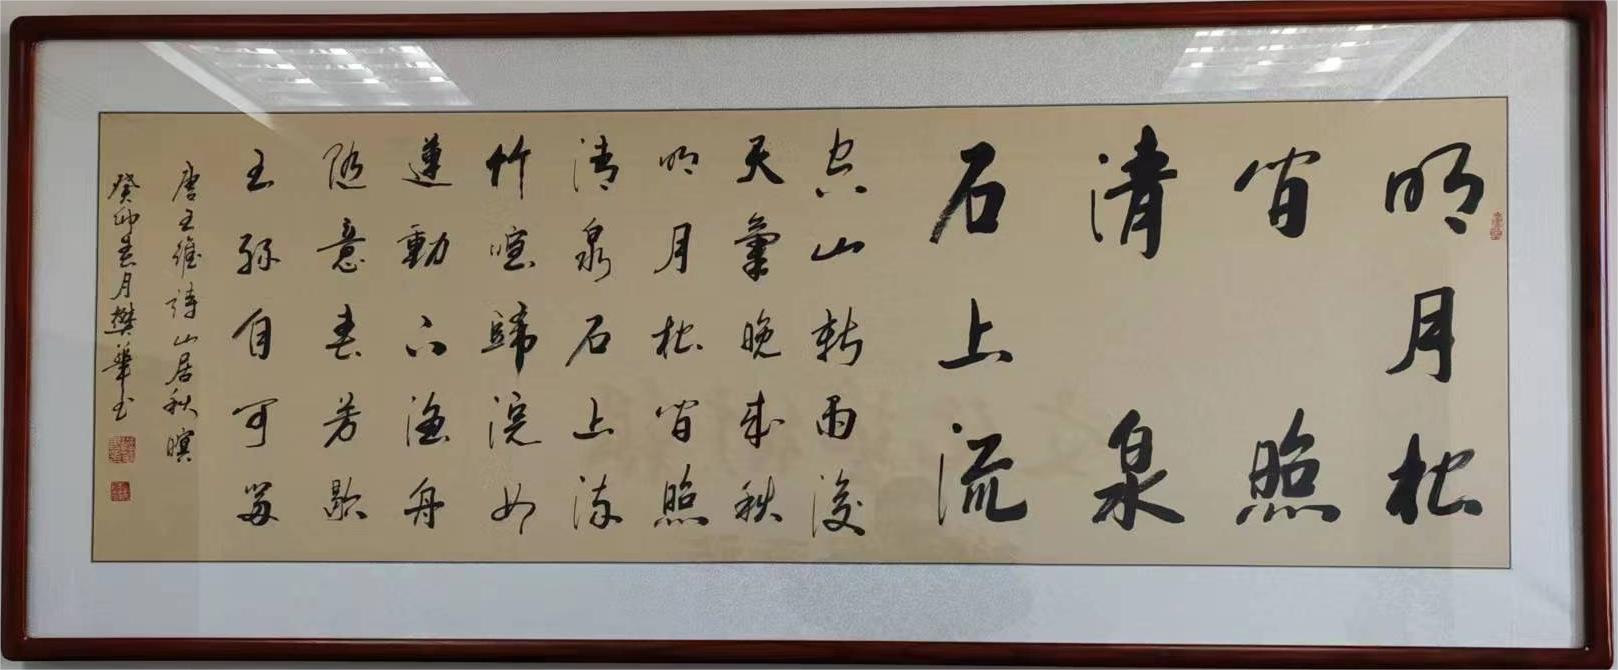 明月松
间照
清泉
石上流
空山新雨後
天氣晚来秋
明月松间照
清泉石上流
竹喧歸浣女
蓮動下漁舟
随意春芳歇
王孫自可留
唐王維詩山居秋暝
癸卯春月樊華书